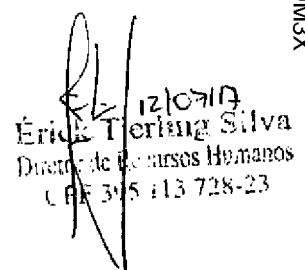 M3X
12/07/17
Érick Tierling Silva
Diretor de Recursos Humanos
CPF 395 113 728-23